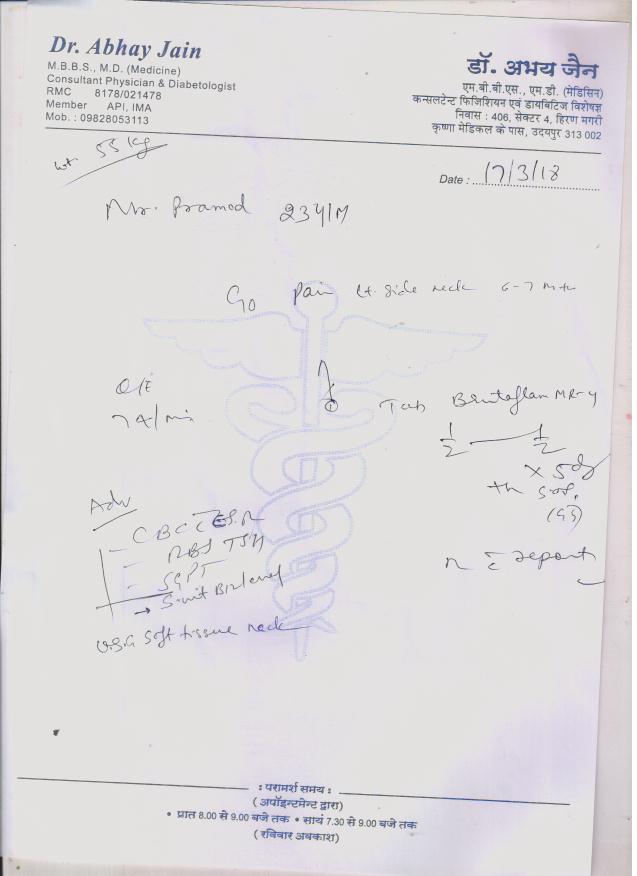 Dr. Abhay Jain
M.B.B.S., M.D. (Medicine)
Consultant Physician & Diabetologist
RMC 8178/021478
Member API, IMA
Mob. : 09828053113
डॉ. अभय जैन
एम.बी.बी.एस., एम.डी. (मेडिसिन)
कन्सलटेन्ट फिजिशियन एवं डायबिटिज विशेषज्ञ
निवास : 406, सेक्टर 4, हिरण मगरी
कृष्णा मेडिकल के पास, उदयपुर 313 002
wt. 55 kg
Date : 17/3/18
Mr. Pramod 23Y/M
C/o Pain Lt. side neck 6-7 mth
O/E
74/min
Tab MR-4
1/2 — 1/2
x 5d
Adv
- CBC ESR
- RBS TSH
- SGPT
→ S. vit B12 level
U.S.G Soft tissue neck
report
: परामर्श समय :
( अपॉइन्टमेन्ट द्वारा)
• प्रात 8.00 से 9.00 बजे तक • सायं 7.30 से 9.00 बजे तक
( रविवार अवकाश)